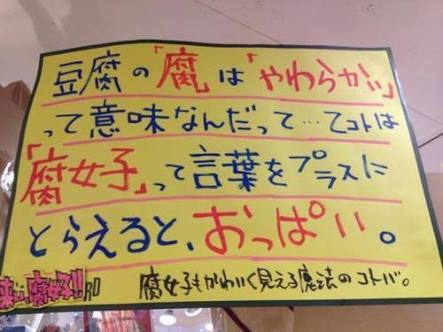 豆腐の「腐」は「やわらかい」
って意味なんだって…てコトは
「腐女子」って言葉をプラスに
とらえると、おっぱい。
来い腐女子!!
腐女子もかわいく見える魔法のコトバ。